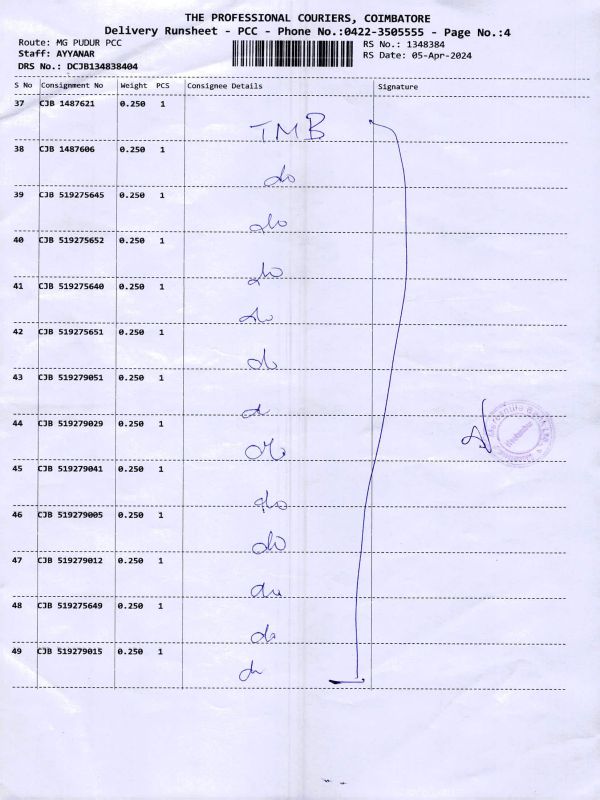 THE PROFESSIONAL COURIERS, COIMBATORE
Delivery Runsheet - PCC - Phone No.:0422-3505555 - Page No.:4
Route: MG PUDUR PCC
RS No.: 1348384
Staff: AYYANAR
RS Date: 05-Apr-2024
DRS No.: DCJB134838404
S No Consignment No Weight PCS Consignee Details Signature
37 CJB 1487621 0.250 1
TMB
38 CJB 1487606 0.250 1
do
39 CJB 519275645 0.250 1
do
40 CJB 519275652 0.250 1
do
41 CJB 519275640 0.250 1
do
42 CJB 519275651 0.250 1
do
43 CJB 519279051 0.250 1
44 CJB 519279029 0.250 1
45 CJB 519279041 0.250 1
do
46 CJB 519279005 0.250 1
do
47 CJB 519279012 0.250 1
48 CJB 519275649 0.250 1
do
49 CJB 519279015 0.250 1